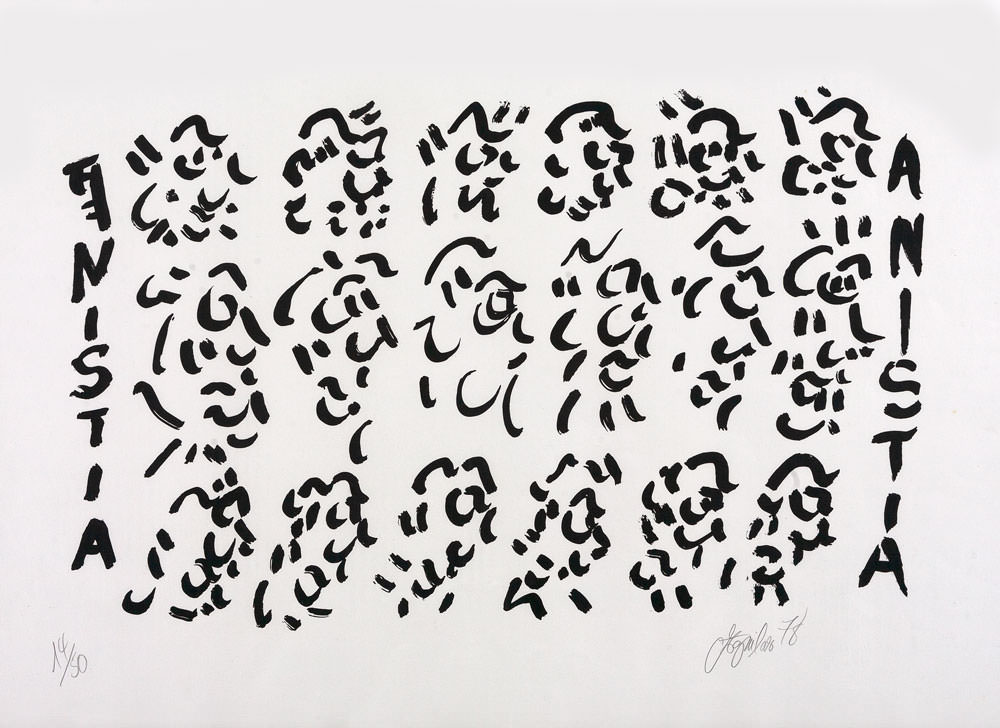 ANISTIA
ANISTIA
14/50
Aguilar 78